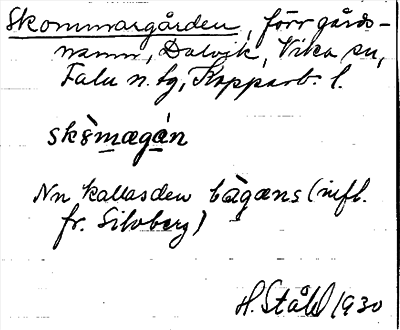 Skommargården, förr gårds-
namn, Dalvik, Vika sn,
Falu n. tg, Kopparb. l.
skömægàn
Nu kallas den bàgæns (infl.
fr. Silvberg)
H. Ståhl 1930